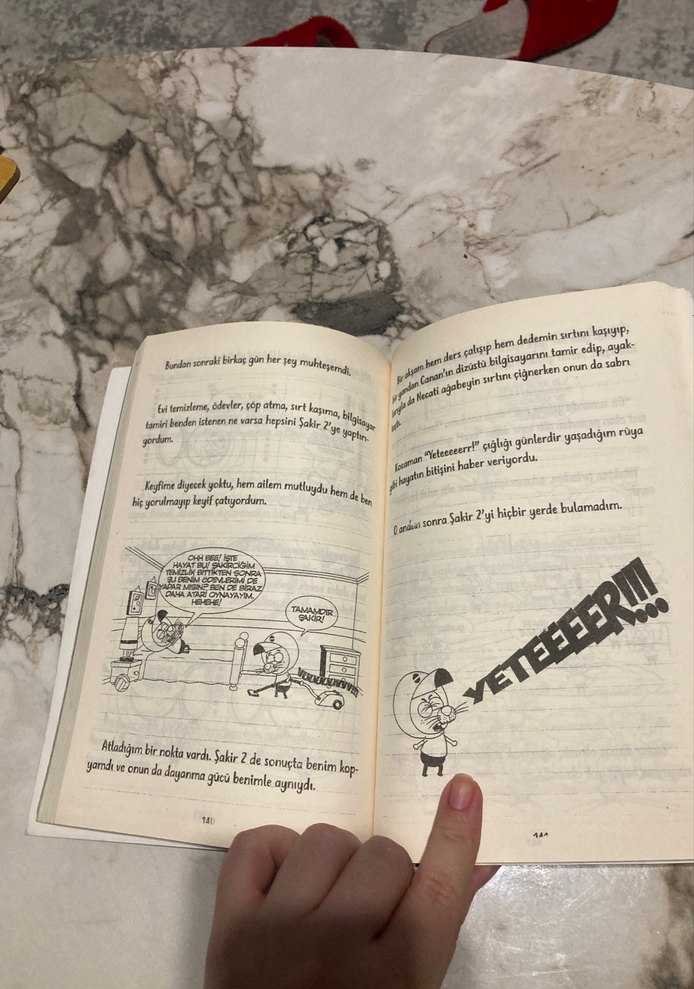 Bundan sonraki birkaç gün her şey muhteşemdi.
Evi temizleme, ödevler, çöp atma, sırt kaşıma, bilgisayar
tamiri benden istenen ne varsa hepsini Şakir 2'ye yaptırı-
yordum.
Keyfime diyecek yoktu, hem ailem mutluydu hem de ben
hiç yorulmayıp keyif çatıyordum.
OHH BEE! İŞTE
HAYAT BU! ŞAKİRCİĞİM
TEMİZLİK BİTTİKTEN SONRA
ŞU BENİM ÖDEVLERİMİ DE
YAPAR MISIN? BEN DE BİRAZ
DAHA ATARİ OYNAYAYIM.
HEHEHE!
TAMAMDIR
ŞAKİR!
Atladığım bir nokta vardı. Şakir 2 de sonuçta benim kop-
yamdı ve onun da dayanma gücü benimle aynıydı.
140
Bir akşam hem ders çalışıp hem dedemin sırtını kaşıyıp,
bir yandan Canan'ın dizüstü bilgisayarını tamir edip, ayak-
larıyla da Necati ağabeyin sırtını çiğnerken onun da sabrı
taştı.
Kocaman "Yeteeeeerr!" çığlığı günlerdir yaşadığım rüya
gibi hayatın bitişini haber veriyordu.
O andan sonra Şakir 2'yi hiçbir yerde bulamadım.
YETEEEER!!!